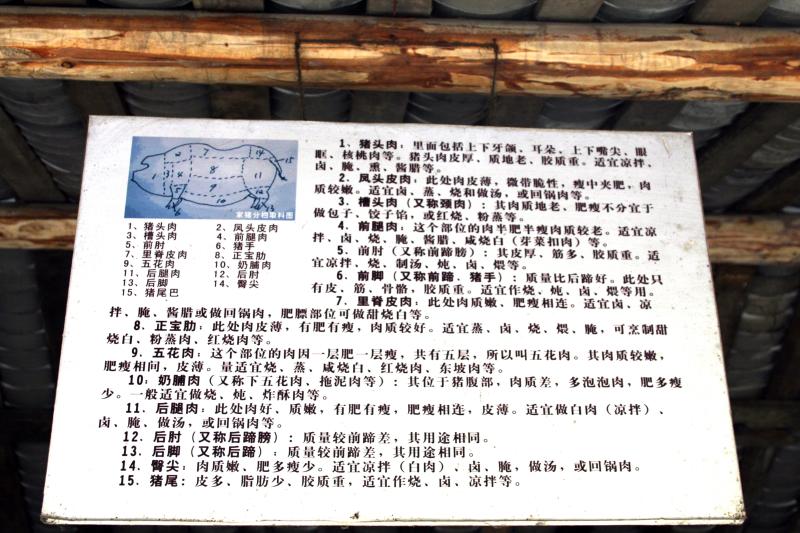 家猪分档取料图
1、猪头肉 2、凤头皮肉
3、槽头肉 4、前腿肉
5、前肘 6、猪手
7、里脊皮肉 8、正宝肋
9、五花肉 10、奶脯肉
11、后腿肉 12、后肘
13、后脚 14、臀尖
15、猪尾巴
1、猪头肉：里面包括上下牙颌、耳朵、上下嘴尖、眼
眶、核桃肉等。猪头肉皮厚、质地老、胶质重。适宜凉拌、
卤、腌、熏、酱腊等。
2、凤头皮肉：此处肉皮薄，微带脆性，瘦中夹肥，肉
质较嫩。适宜卤、蒸、烧和做汤，或回锅肉等。
3、槽头肉（又称颈肉）：其肉质地老、肥瘦不分宜于
做包子、饺子馅，或红烧、粉蒸等。
4、前腿肉：这个部位的肉半肥半瘦肉质较老。适宜凉
拌、卤、烧、腌、酱腊、咸烧白（芽菜扣肉）等。
5、前肘（又称前蹄膀）：其皮厚、筋多、胶质重。适
宜凉拌、烧、制汤、炖、卤、煨等。
6、前脚（又称前蹄．猪手）：质量比后蹄好。此处只
有皮、筋、骨骼，胶质重。适宜作烧、炖、卤、煨等用。
7、里脊皮肉：此处肉质嫩、肥瘦相连。适宜卤、凉
拌、腌、酱腊或做回锅肉，肥膘部位可做甜烧白等。
8、正宝肋：此处肉皮薄，有肥有瘦，肉质较好。适宜蒸、卤、烧、煨、腌，可烹制甜
烧白、粉蒸肉、红烧肉等。
9、五花肉：这个部位的肉因一层肥一层瘦，共有五层，所以叫五花肉。其肉质较嫩，
肥瘦相间，皮薄。量适宜烧、蒸、咸烧白、红烧肉、东坡肉等。
10：奶脯肉（又称下五花肉、拖泥肉等）：其位于猪腹部，肉质差，多泡泡肉，肥多瘦
少。一般适宜做烧、炖、炸酥肉等。
11、后腿肉：此处肉好、质嫩，有肥有瘦，肥瘦相连，皮薄。适宜做白肉（凉拌）、
卤、腌、做汤，或回锅肉等。
12、后肘（又称后蹄膀）：质量较前蹄差，其用途相同。
13、后脚（又称后蹄）：质量较前蹄差，其用途相同。
14、臀尖：肉质嫩、肥多瘦少。适宜凉拌（白肉）、卤、腌，做汤，或回锅肉。
15、猪尾：皮多、脂肪少、胶质重，适宜作烧、卤、凉拌等。